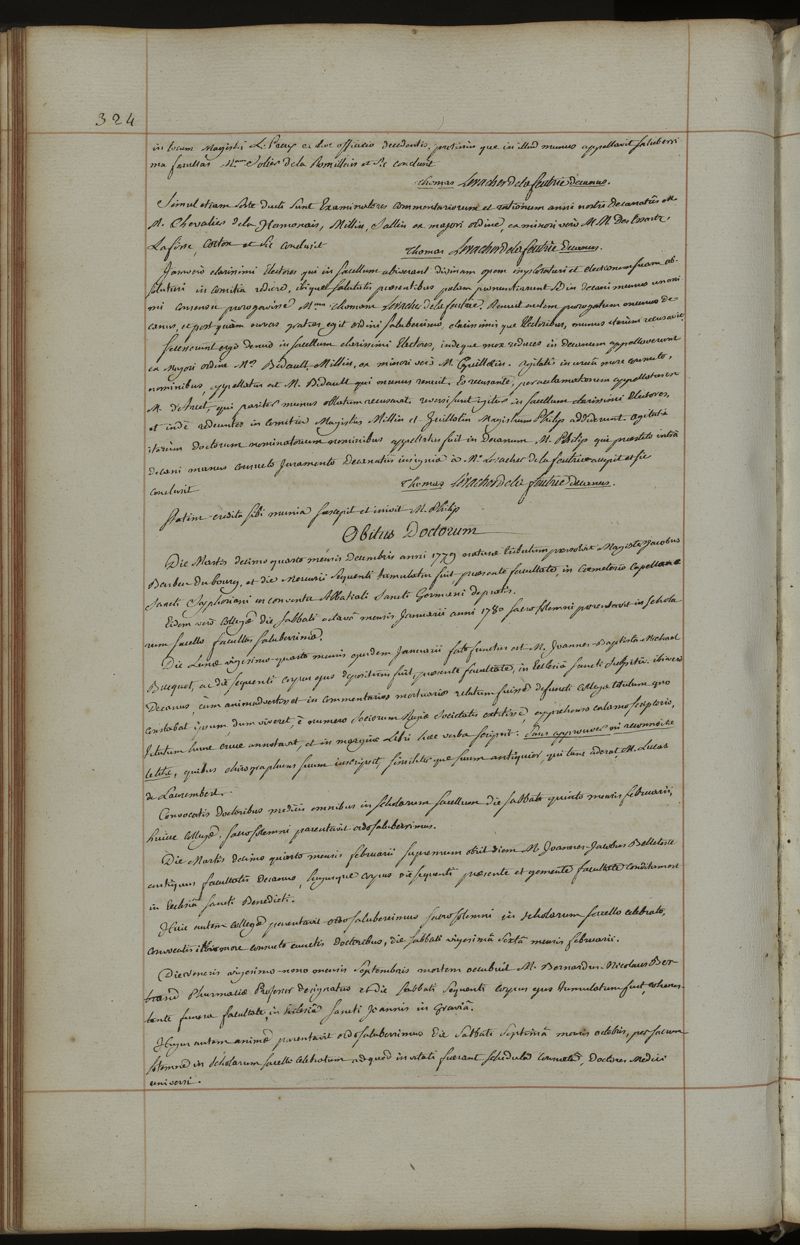 324
in locum Magistri Le Preux ex hoc officio decedentis, pristinis que in illud munus appellavit saluberri
ma facultas Mrum Solier de la Romillais et sic conclusit
Thomas Levacher de la feutrie decanus.
Simul etiam sorte ducti sunt Examinatores commentariorum et rationum anni nostri decanatûs M.
M. Chevalier, de la Hamonais, Millin, Sallin ex majori ordine, ex minori verò M.M. Des Essartz,
Lafisse, Coston et sic conclusit Thomas Levacher de la feutrie decanus.
clarissimi Electores qui in sacellum abierant divinam opem imploraturi et electionem suam ab-
soluturi in comitia rediere, ibique salutatis presentibus palam pronuntiarunt se in decani munus unani
mi consensu prorogavisse Mrum Thomam Levacher de la feutrie. Renuit autem prorogatum munus de-
canus, et post quam suas grates egit ordini saluberrimo, clarissimis que Electoribus, munus iterum recusavit
Secesserunt ergò denuò in sacellum clarissimi Electores, indeque mox reduces in decanum appellaverunt
ex majori ordine Mos Bidault, Millin, ex minori verò M. Guillotin. agitatis in urnâ more consueto,
nominibus, appellatus est M. Bidault qui munus renuit. Eo recusante, per acclamationem appellatus est
M. d'Arcet, qui pariter munus oblatum recusavit. reversi sunt igitur in sacellum clarissimi Electores,
et inde redeuntes in comitia Magistris Millin et Guillotin Magistrum Philip addiderunt. agitatis
iterum doctorum nominatorum nominibus appellatus fuit in decanum M. Philip qui praestito intrà
decani manus consueto juramento decanatûs insignia à Mo Levacher de la feutrie accepit et sic
conclusit Thomas Levacher de la feutrie decanus.
Statim credita sibi munia suscepit et inivit M. Philip
Obitus Doctorum
Die Martis decimo quarto mensis decembris anni 1779 naturae tributum persolvit Magister Jacobus
Barbeu Dubourg, et die Mercurii sequenti tumulatus fuit presente facultate, in Coemeterio Capellae
Sancti Symphoriani in conventu Abbatiali Sancti Germani à pratis.
Eidem verò collegae die sabbati octavâ mensis Januarii anni 1780 sacro solemni parentavit in schola
rum sacello facultas saluberrima.
Die Lunae vigesimo-quarto mensis ejusdem Januarii fato functus est M. Joannes-Baptista-Michael
Bucquet, ac die sequenti corpus ejus depositum fuit, presente facultate, in Ecclesiâ Sancti
Decanus, cum animadvertisset in commentarios mortuario relatum fuisse defuncti collegae titulum quo
constabat ipsum, dum viveret, è numero Sociorum Regiae Societatis extitisse, apprehenso calamo scriptorio,
titulum hunc cruce annotavit, et in margine Libri haec verba scripsit. Sans approuver ni reconnoître
le titre, quibus chirographum suum inscripsit, similiter que suum antiquior, qui tunc aderat, M. Lucas
de Laurembert.
Convocatis Doctoribus medicis omnibus in scholarum sacellum die sabbati quinto mensis februarii,
huicce collegae, sacro solemni parentavit ordo saluberrimus.
Die Martis decimo quinto mensis februarii supremum obiit diem M. Joannes-Jacobus Belleteste
antiquus facultatis decanus, hujusque corpus die sequenti praesente et gemente facultate conditum est
in Ecclesiâ Sancti Benedicti.
Huic autem collegae parentavit ordo saluberrimus sacro solemni in scholarum sacello celebrato,
convocatis ibi more consueto cunctis doctoribus, die sabbati vigesimâ sextâ mensis februarii.
Die veneris vigesimo-nono mensis septembris mortem occubuit M. Bernardus-Nicolaus Ber-
trand Pharmaciae Professor designatus et die sabbati sequenti corpus ejus tumulatum fuit cohones-
tante funera facultate, in Ecclesiâ Sancti Joannis in Graviâ.
Hujus autem animae parentavit ordo saluberrimus die sabbati septimâ mensis octobris, per sacrum
solemne in scholarum sacello celebratum ad quod invitati fuerant schedulâ consuetâ, Doctores Medici
universi.